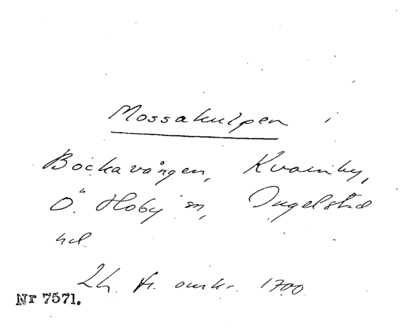 Mossakulpen i
Bockavången, Kvarnby,
Ö. Hoby sn, Ingelstad
hd.
2h. fr. omkr. 1700.
Nr 7571.